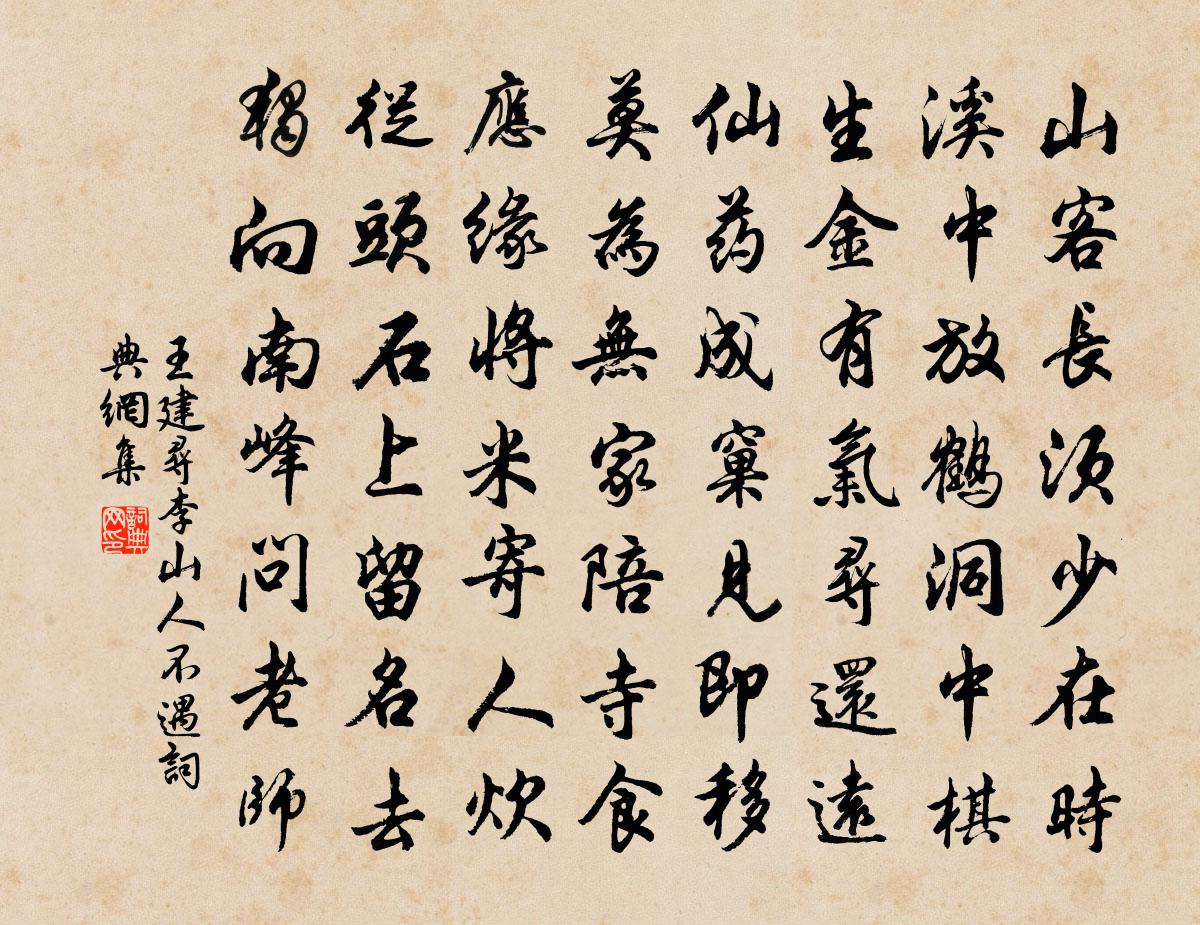 山客長須少在時
溪中放鶴洞中棋
生金有氣尋還遠
仙药成窠見即移
莫為無家陪寺食
應緣將米寄人炊
從頭石上留名去
獨向南峰問老師
王建尋李山人不遇詞
典網集
詞典网印